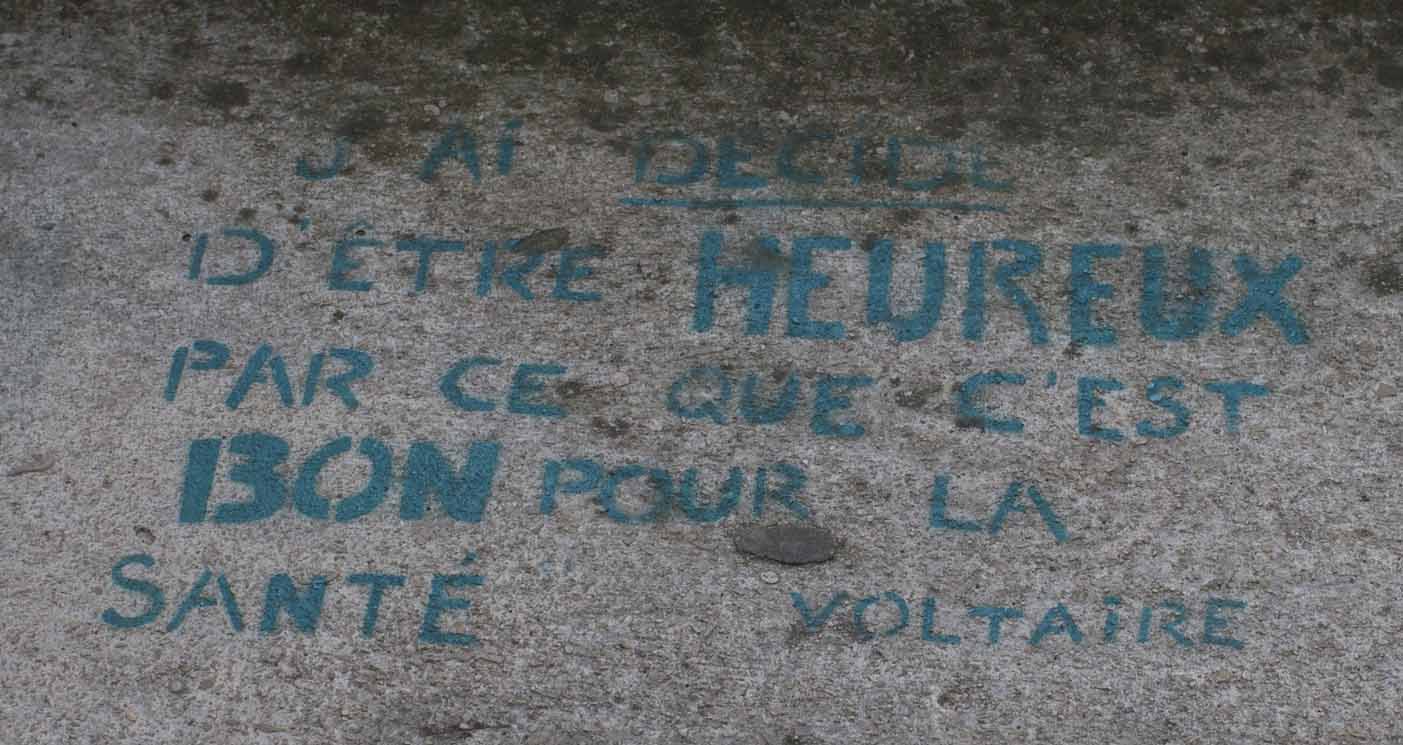 J'Ai DECiDE
D'ÊTRE HEUREUX
PAR CE QUE C'EST
BON POUR LA
SANTÉ VOLTAiRE